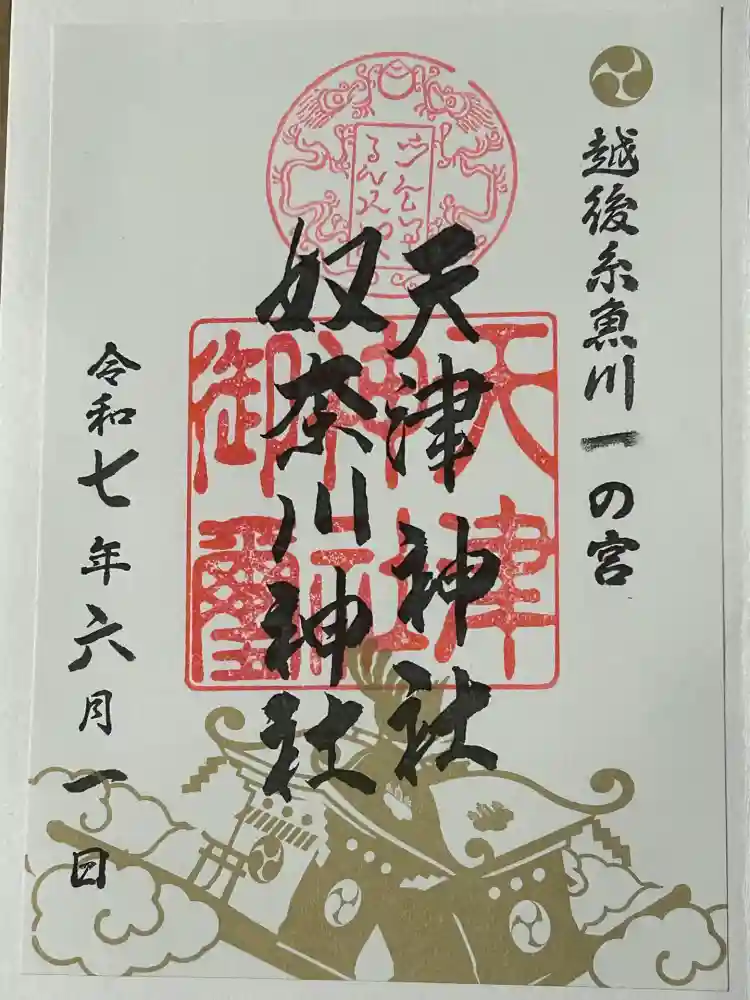 越後糸魚川一の宮
天津神社
奴奈川神社
天津
神社
御璽
令和七年六月一日